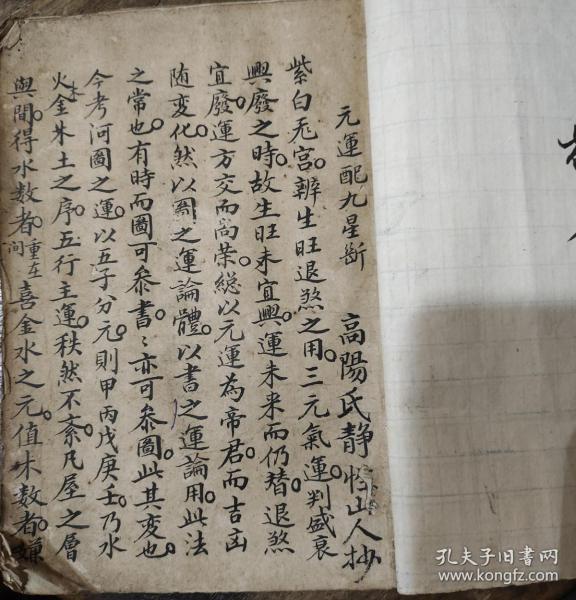 元運配九星断　高陽氏静怡山人抄
紫白飛宫辨生旺退煞之用三元氣運判盛衰
興廢之時故生旺未宜興運未来而仍替退煞
宜廢運方交而尚荣総以元運為帝君而吉凶
随变化然以圖之運論體以書之運論用此法
之常也有時而圖可参書〻亦可参圖此其变也
今考河圖之運以五子分元則甲丙戊庚壬乃水
火木金土之序五行主運秩然不紊凡屋之層
與間得水数者重在间喜金水之元值木数者嫌
孔夫子旧书网
www.kongfz.com